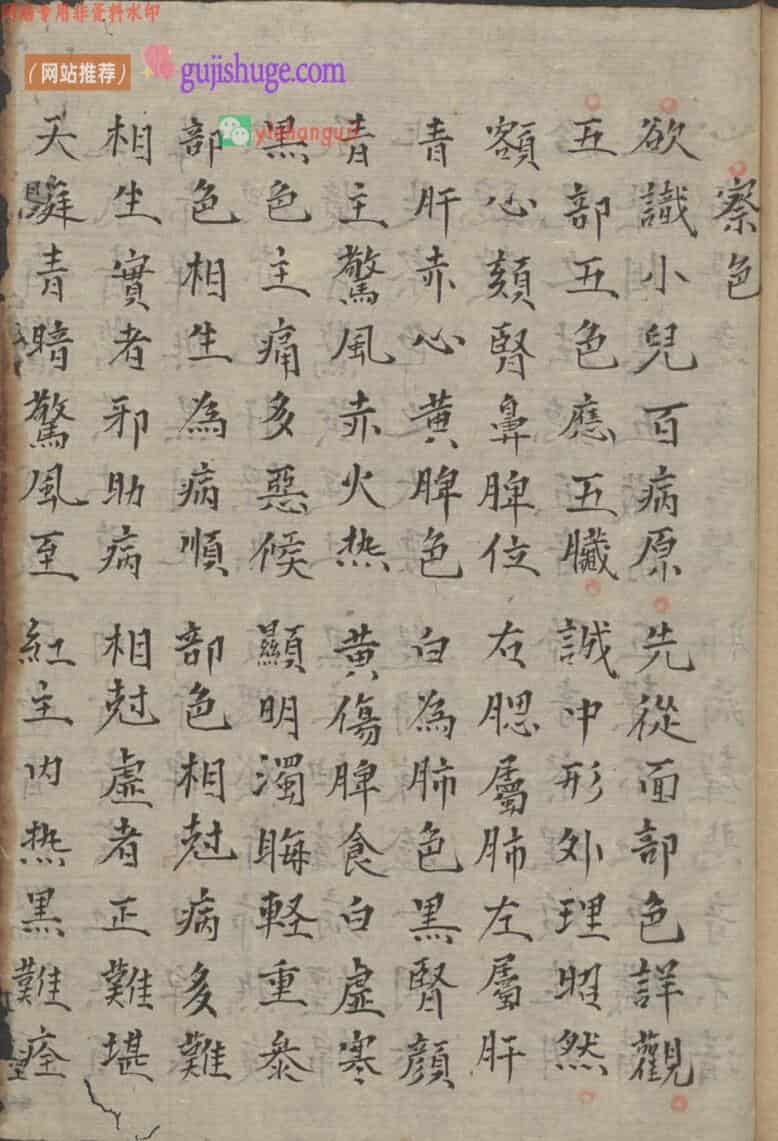 （网站推荐）
gujishuge.com
察色
欲識小兒百病原 先從面部色詳觀
五部五色應五臟 誠中形外理昭然
額心頦腎鼻脾位 右腮屬肺左屬肝
青肝赤心黄脾色 白為肺色黑腎顔
青主驚風赤火热 黄傷脾食白虛寒
黑色主痛多惡候 顯明濁晦輕重叅
部色相生為病順 部色相尅病多難
相生實者邪助病 相尅虛者正難堪
天庭青暗驚風至 紅主内热黑難痊